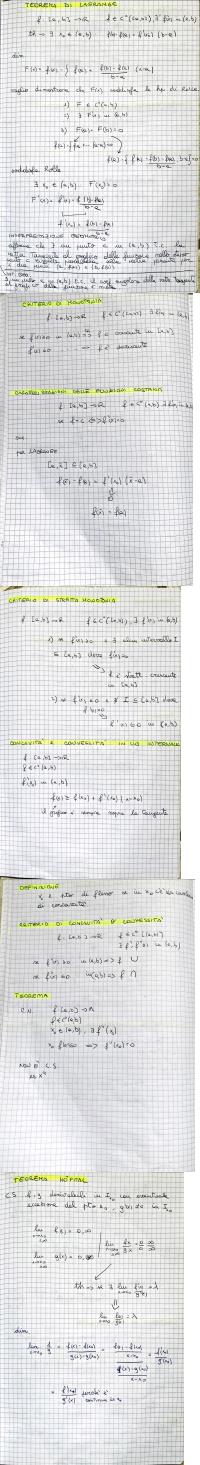 TEOREMA DI LAGRANGE
f: [a,b] → R f ∈ C°([a,b]), ∃ f'(x) in (a,b)
th → ∃ x₀ ∈ (a,b) f(b)-f(a) = f'(x₀) (b-a)
dim
F(x) = f(x) - { f(a) + f(b)-f(a) / b-a (x-a)
voglio dimostrare che F(x) soddisfa le hp di Rolle
1) F ∈ C°(a,b)
2) ∃ F'(x) in (a,b)
3) F(a) = F(b) = 0
soddisfa Rolle
∃ x₀ ∈ (a,b) F'(x₀) = 0
F'(x) = f'(x) - [ f(b)-f(a) / b-a
f'(x₀) = f(b)-f(a) / b-a
INTERPRETAZIONE GEOMETRICA
afferma che ∃ un punto c in (a,b) t.c. la
retta tangente al grafico della funzione nello stesso
CRITERIO DI MONOTONIA
f: [a,b] → R f ∈ C°([a,b]) ∃ f'(x) in (a,b)
se f'(x) ≥ 0 in (a,b) ⇒ f è crescente in [a,b]
f'(x) ≤ 0 — f è decrescente
CARATTERIZZAZIONE DELLE FUNZIONI COSTANTI
f: [a,b] → R f ∈ C°([a,b]), ∃ f'(x) in (a,b)
se f = c ⇔ f'(x) = 0
dim
per LAGRANGE
[a,x] ⊆ [a,b]
f(x) - f(a) = f'(x₀) (x-a)
0
f(x) = f(a)
CRITERIO DI STRETTA MONOTONIA
f: [a,b] → R f ∈ C°([a,b]), ∃ f'(x) in (a,b)
1) se f'(x) ≥ 0 e ∄ alcun intervallo I
⊆ [a,b] dove f'(x) = 0
f è strett. crescente
in [a,b]
2) se f'(x) ≤ 0 e ∄ I ⊆ [a,b] dove
f'(x) = 0
CONCAVITA' E CONVESSITA' IN UN INTERVALLO
f: [a,b] → R
f ∈ C°(a,b)
f'(x₀) in (a,b)
f(x) ≥ f(x₀) + f'(x₀) (x-x₀)
il grafico è sempre sopra la tangente
DEFINIZIONE
x₀ è pto di flesso se in x₀ c'è un cambio
di concavità
CRITERIO DI CONCAVITA' E CONVESSITA'
f: [a,b] → R f ∈ C°([a,b])
∃ f', f''(x) in (a,b)
se f''(x) ≥ 0 in (a,b) ⇒ f ∪
se f''(x) ≤ 0 in (a,b) ⇒ f ∩
TEOREMA
C.N. f: (a,b) → R
f ∈ C°(a,b)
x₀ ∈ (a,b), ∃ f''(x₀)
x₀ flesso ⇒ f''(x₀) = 0
NON È C.S.
es x⁴
TEOREMA HOPITAL
C.S. f, g derivabili in I x₀ con eventuale
eccezione del pto x₀, g'(x) ≠ 0 in I x₀
lim f(x) = 0, ∞
lim g(x) = 0, ∞
lim f(x) / g(x) = 0/0 ∞/∞
th ⇒ se ∃ lim f'(x) / g'(x) = λ
lim f(x) / g(x) = λ
dim
lim f/g = f(x) - f(x₀) / g(x) - g(x₀) = f(x) - f(x₀) / x-x₀ / g(x) - g(x₀) / x-x₀ = f'(x₀) / g'(x₀)
= f'(x) / g'(x) perché è
continua in x₀